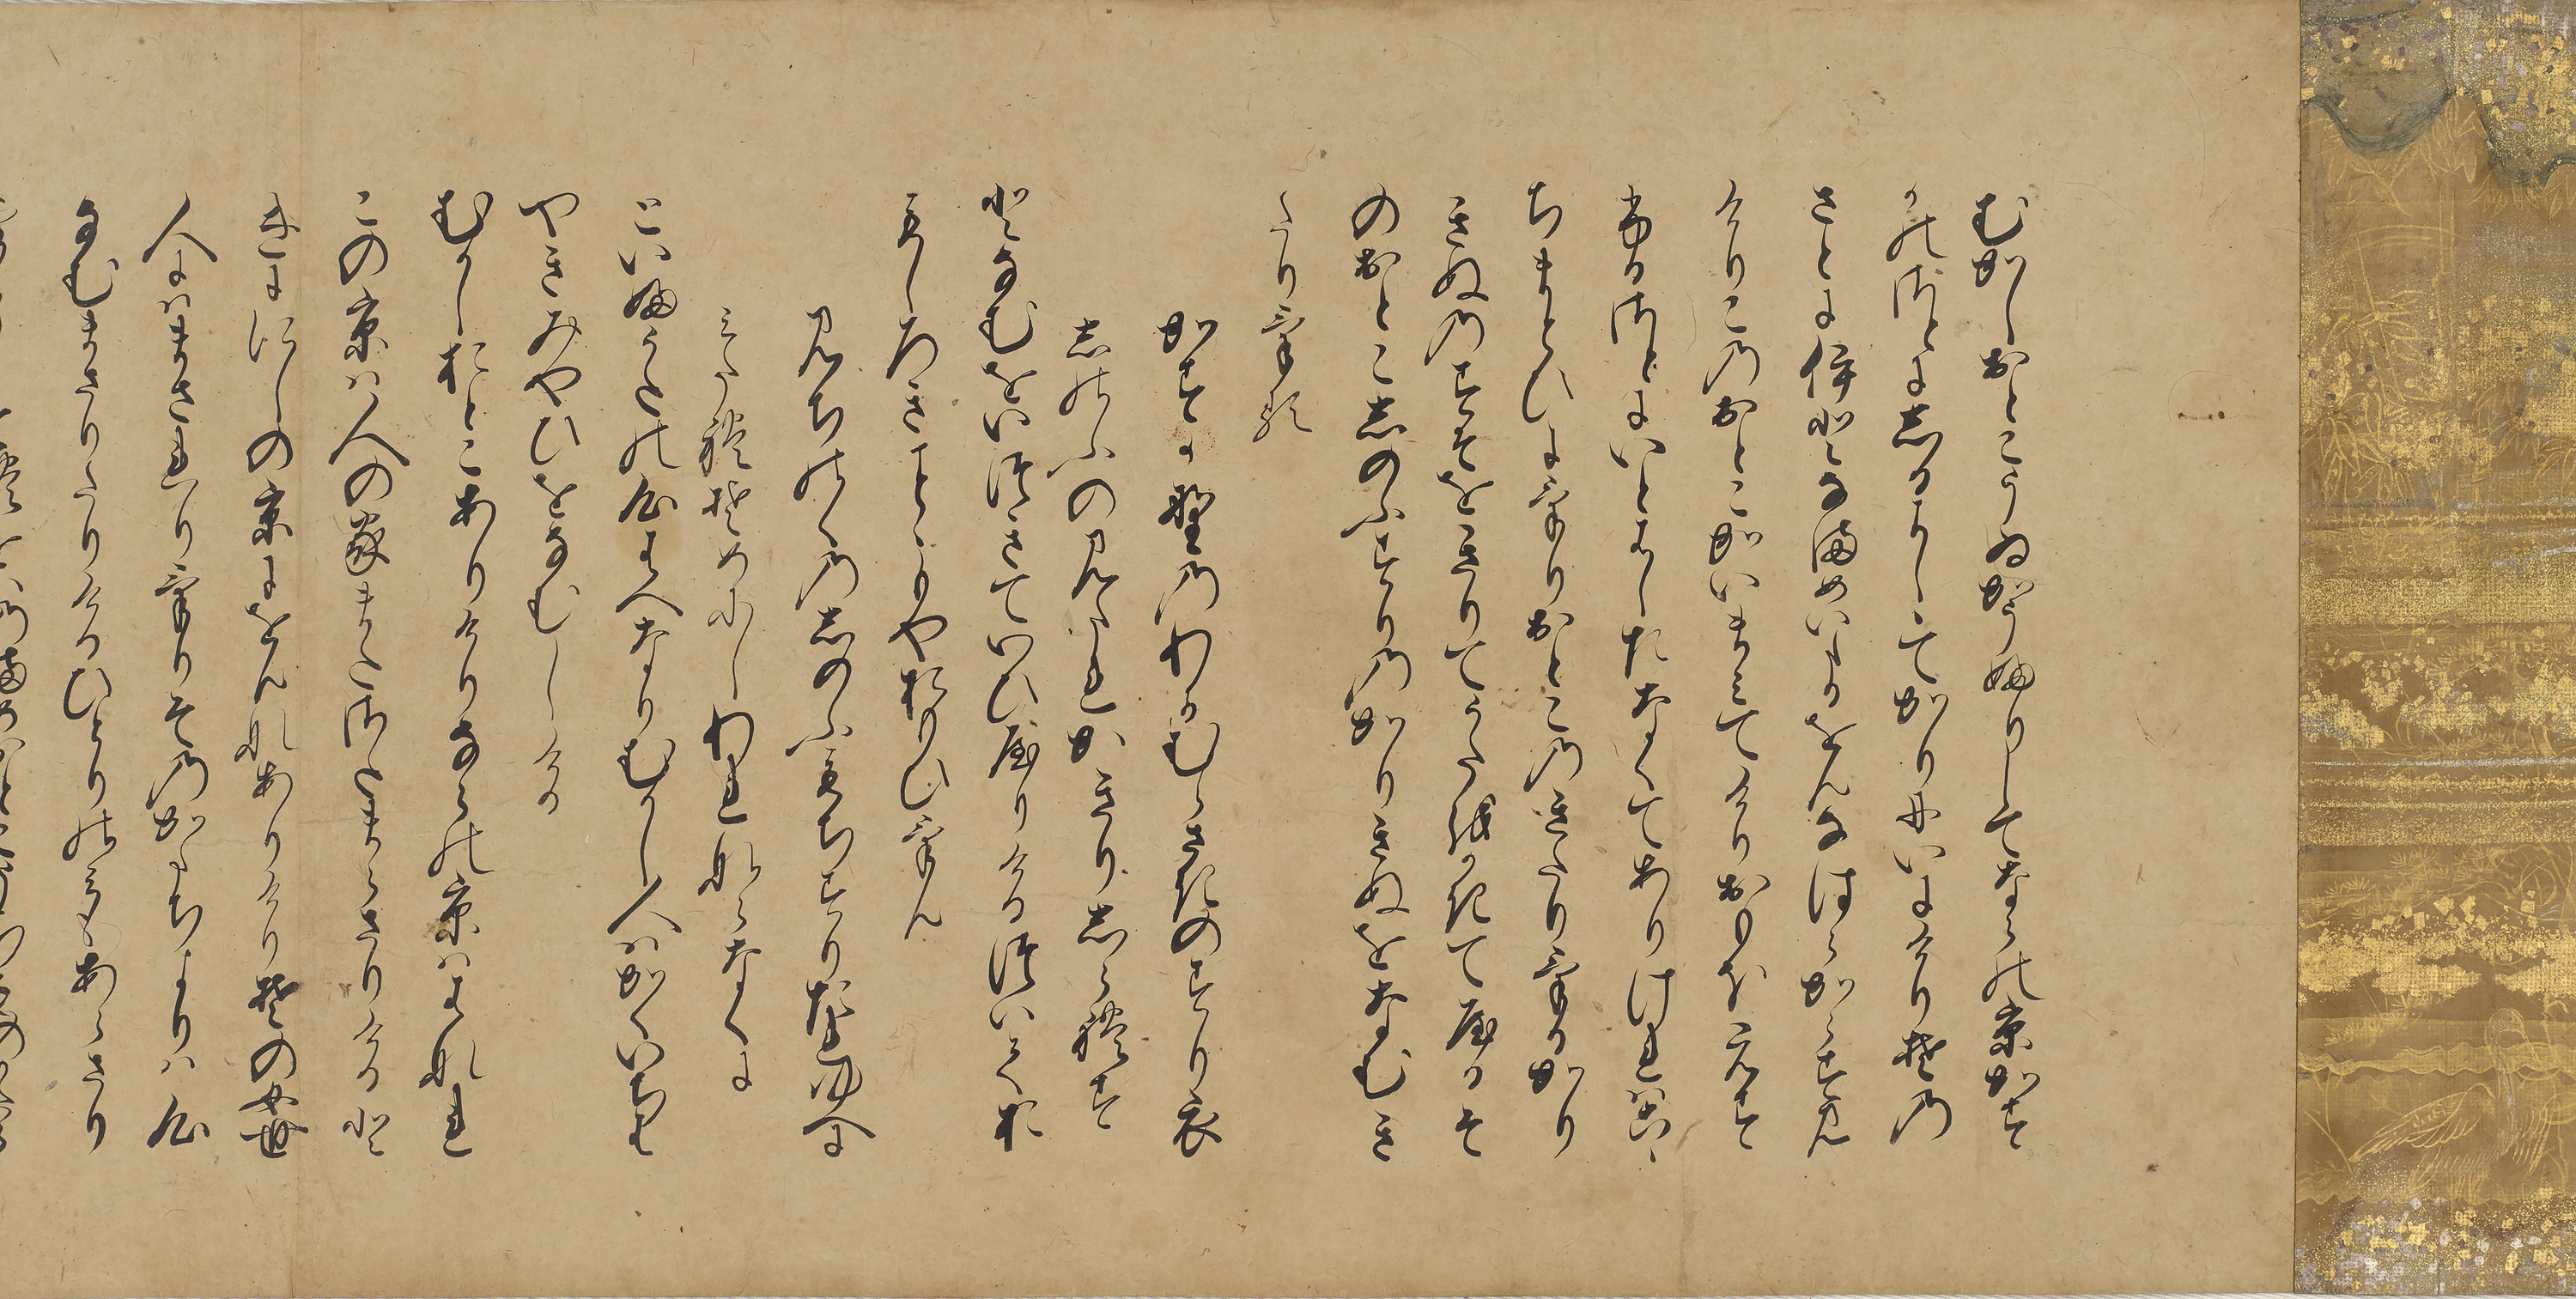 むかしおとこうゐかうふりしてならの京かす
かのさとにしるよしゝてかりにいにけりその
さとにいとなまめいたるをんなはらからすみ
けりこのおとこかいまみてけりおもほえす
ふるさとにいとはしたなくてありけれはこゝ
ちまとひにけりおとこのきたりけるかり
きぬのすそをきりてうたをかきてやるそ
のおとこしのふすりのかりきぬをなむき
たりける
かすか野のわかむらさきのすり衣
しのふのみたれかきりしられす
となむをいつきていひやりけるついてお
もしろきことゝもやおもひけん
みちのくのしのふもちすりたれゆへに
みたれそめにしわれならなくに
といふうたの心はへなりむかし人はかくいちは
やきみやひをなむしける
むかしおとこありけりならの京ははなれ
この京は人の家またさたまらさりけると
きにゝしの京にをんなありけりその女世
人にはまされりけりそのかたちよりは心
なむまさりたりけるひとりのみもあらさり